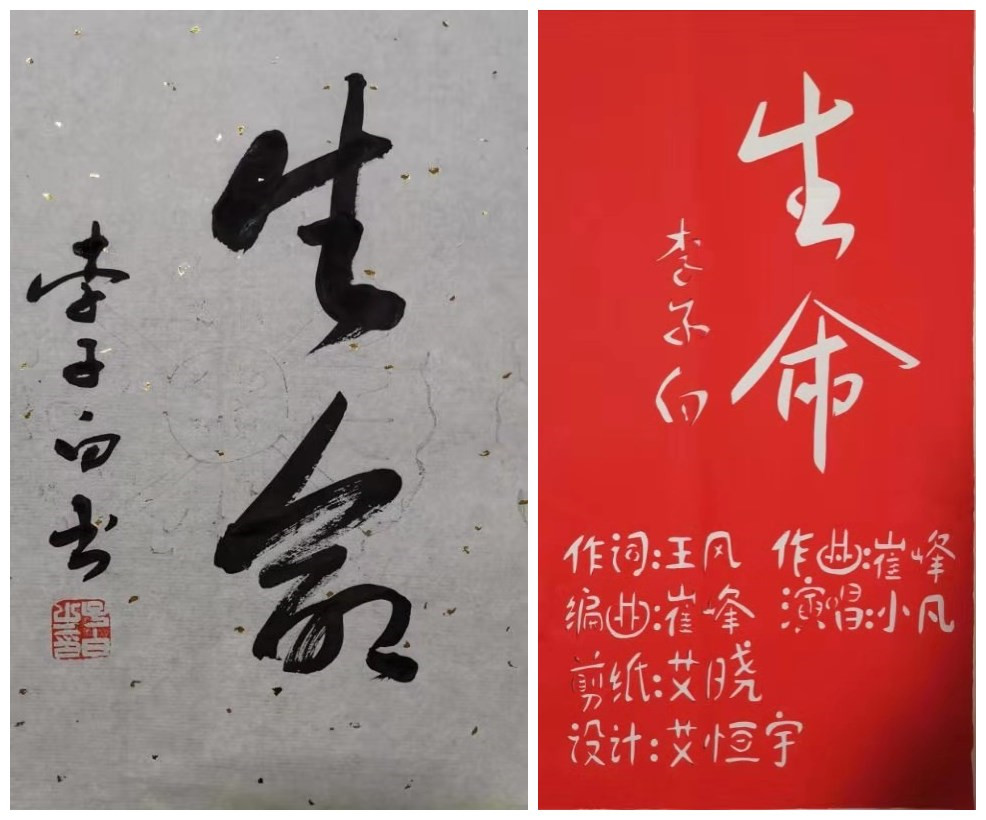 生命
李子白书
生命
李子白
作词:王风 作曲:崔峰
编曲:崔峰 演唱:小凡
剪纸:艾晓
设计:艾恒宇